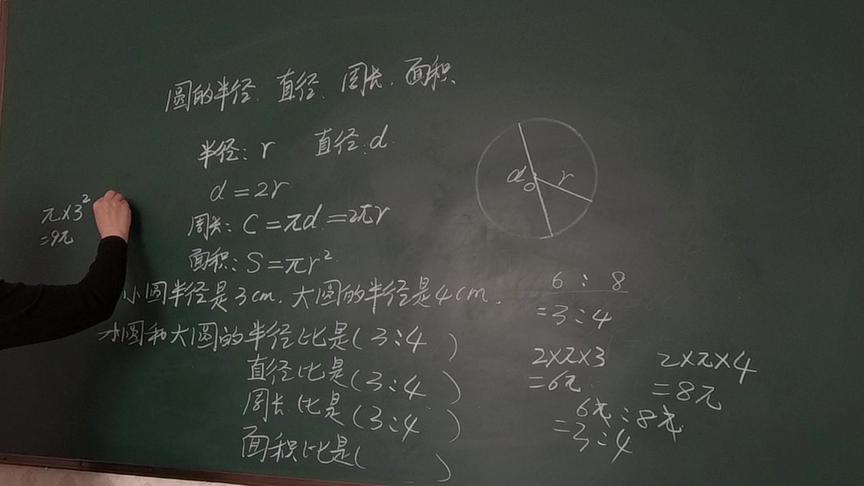 圆的半径、直径、周长、面积、
半径:r 直径:d
d=2r
周长:C=πd=2πr
面积:S=πr²
小圆半径是3cm,大圆的半径是4cm.
小圆和大圆的半径比是(3:4)
直径比是(3:4)
周长比是(3:4)
面积比是( )
π×3²
=9π
d r
O
6:8
=3:4
2×π×3 2×π×4
=6π =8π
6π:8π
=3:4